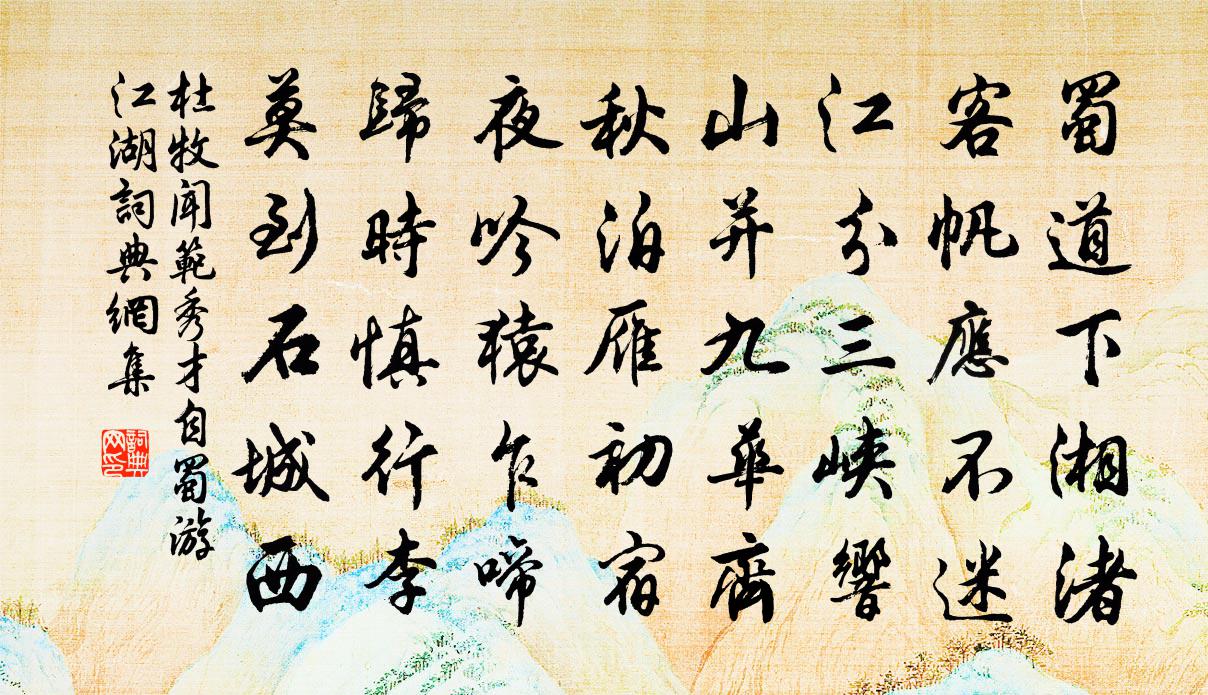 蜀道下湘渚
客帆應不迷
江分三峽響
山并九華齊
秋泊雁初宿
夜吟猿乍啼
歸時慎行李
莫到石城西
杜牧聞範秀才自蜀游
江湖詞典網集
詞典
网印